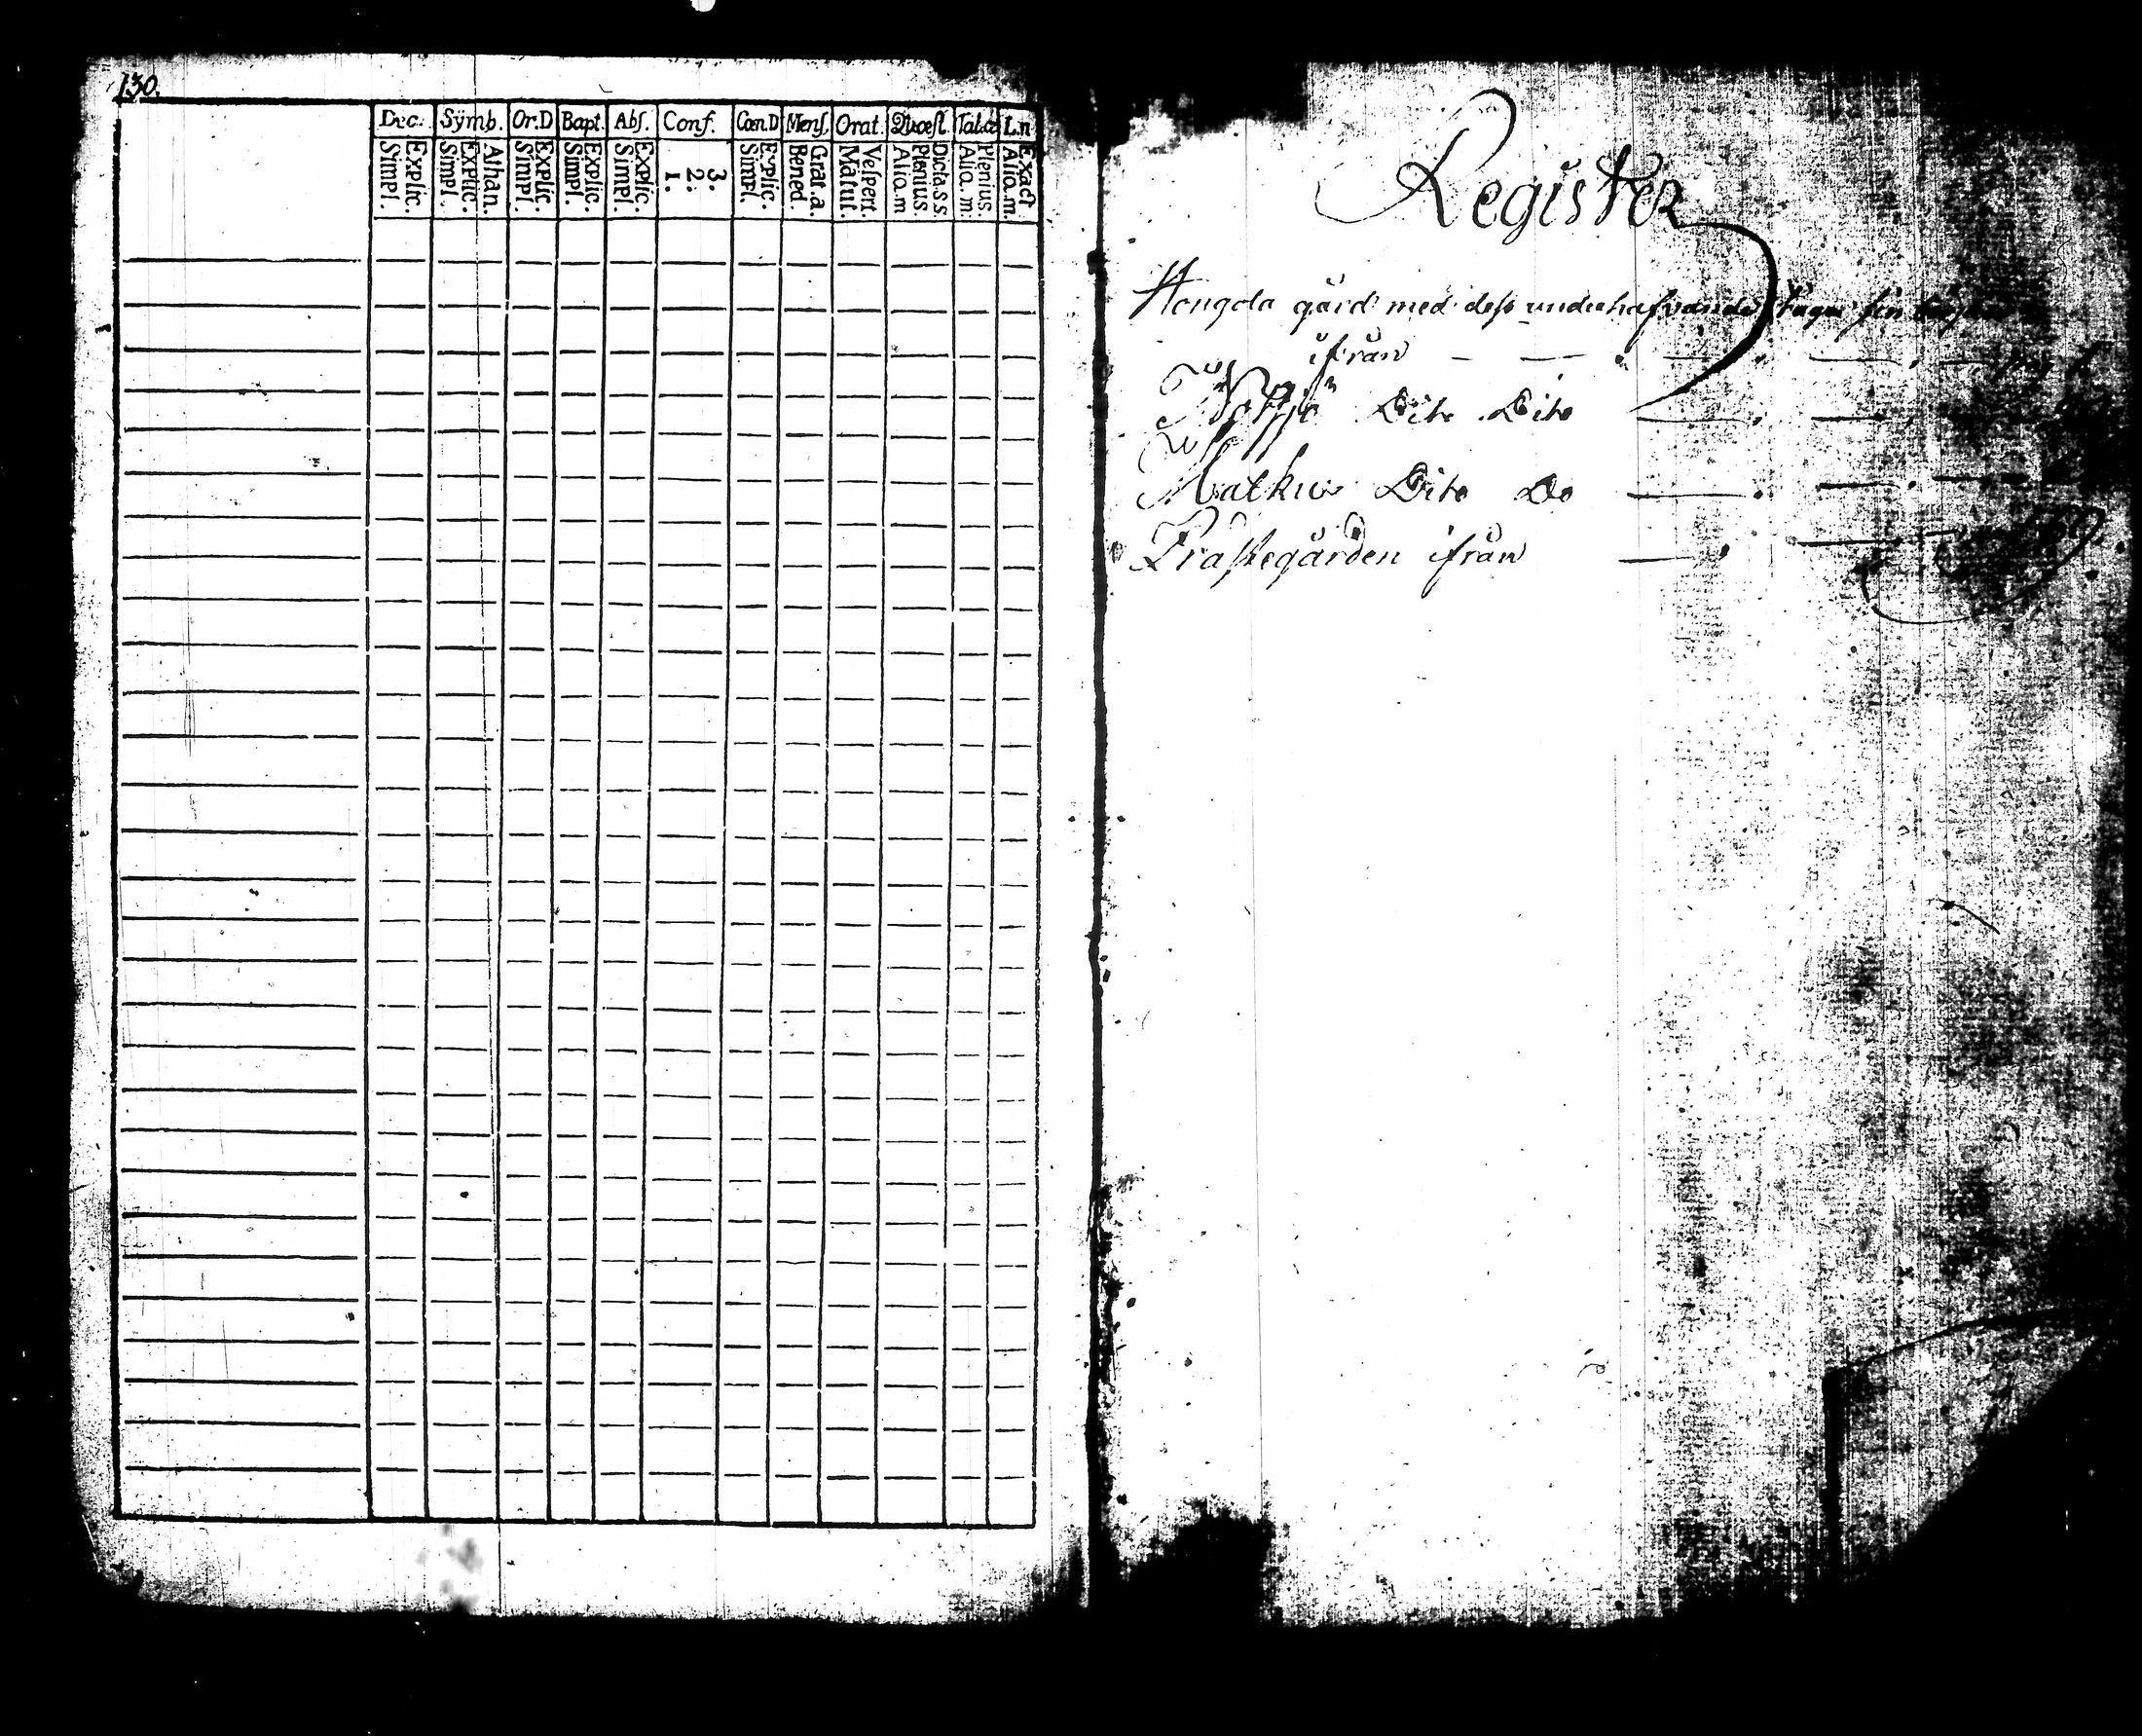 130.
Dec. Sÿmb. Or.D Bapt. Abſ. Conf. Cœn.D Menſ. Orat. Quœſt. Tab.œ L.n
Explic. Simpl.
Athan. Explic. Simpl.
Explic. Simpl.
Explic. Simpl.
Explic. Simpl.
3. 2. 1.
Explic. Simpl.
Grat.a. Bened.
Veſpert. Matut.
Dicta.s.s. Plenius. Alio.m
Plenius. Alio.m
Exact Alio.m.
Register
Hongola gård med deſs underhafvande taga ſin
ifrån
Dito Dito
Malkus Dito Do
Præſtegården ifrån